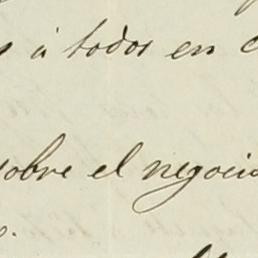 á todos en
sobre el negocio